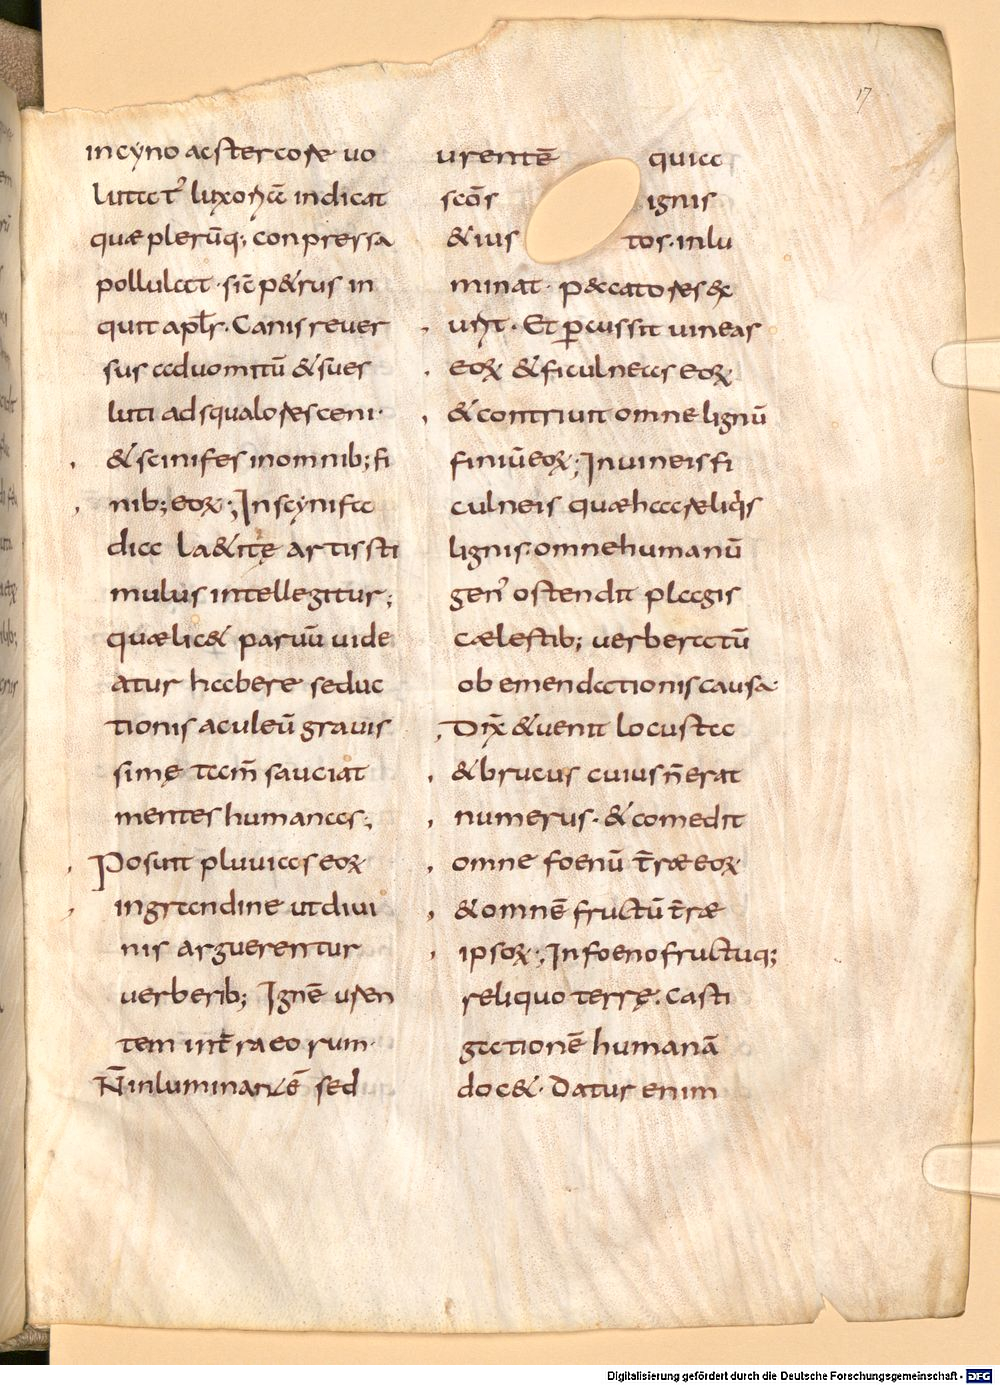 17
in cyno ac stercore uo
lutat᷒ luxoriā indicat
quæ plerūq; conpressa
pollulat · sic̄ p&rus in
quit apl̄s · Canis reuer
sus ad uomitū & sues
luti ad squalores ceni ·
& scinifes in omnib; fi
nib; eoꝝ ; In scynifa
dia La&itę artis sti
mulus intellegitur ;
quæ lic& paruū uide
atur habere seduc
tionis aculeū grauis
simę tam̄ sauciat
mentes humanas ;
Posuit pluuias eoꝝ
in grandine ut diui
nis arguerentur
uerberib; Ignē uren
tem in t̄ra eorum ·
N̄ inluminarē sed
urentē quia
sc̄os ignis
& ius tos · inlu
minat · p&catores &
urit · Et ꝑcussit uineas
eoꝝ & ficulneas eoꝝ
& contriuit omne lignū
finiū eoꝝ ; In uineis fi
culneis quæ hac reliq̇s
lignis · omne humanū
gen᷒ ostendit plagis
cælestib; uerberatū
ob emendationis causa ·
Dix̄ & uenit locusta
& brucus cuius n̄ erat
numerus · & comedit
omne foenū t̄ræ eoꝝ
& omnē fructū t̄ræ
ipsoꝝ ; In foeno fructuq;
reliquo terrę · casti
gationē humanā
doc& · Datur enim
Digitalisierung gefördert durch die Deutsche Forschungsgemeinschaft - DFG